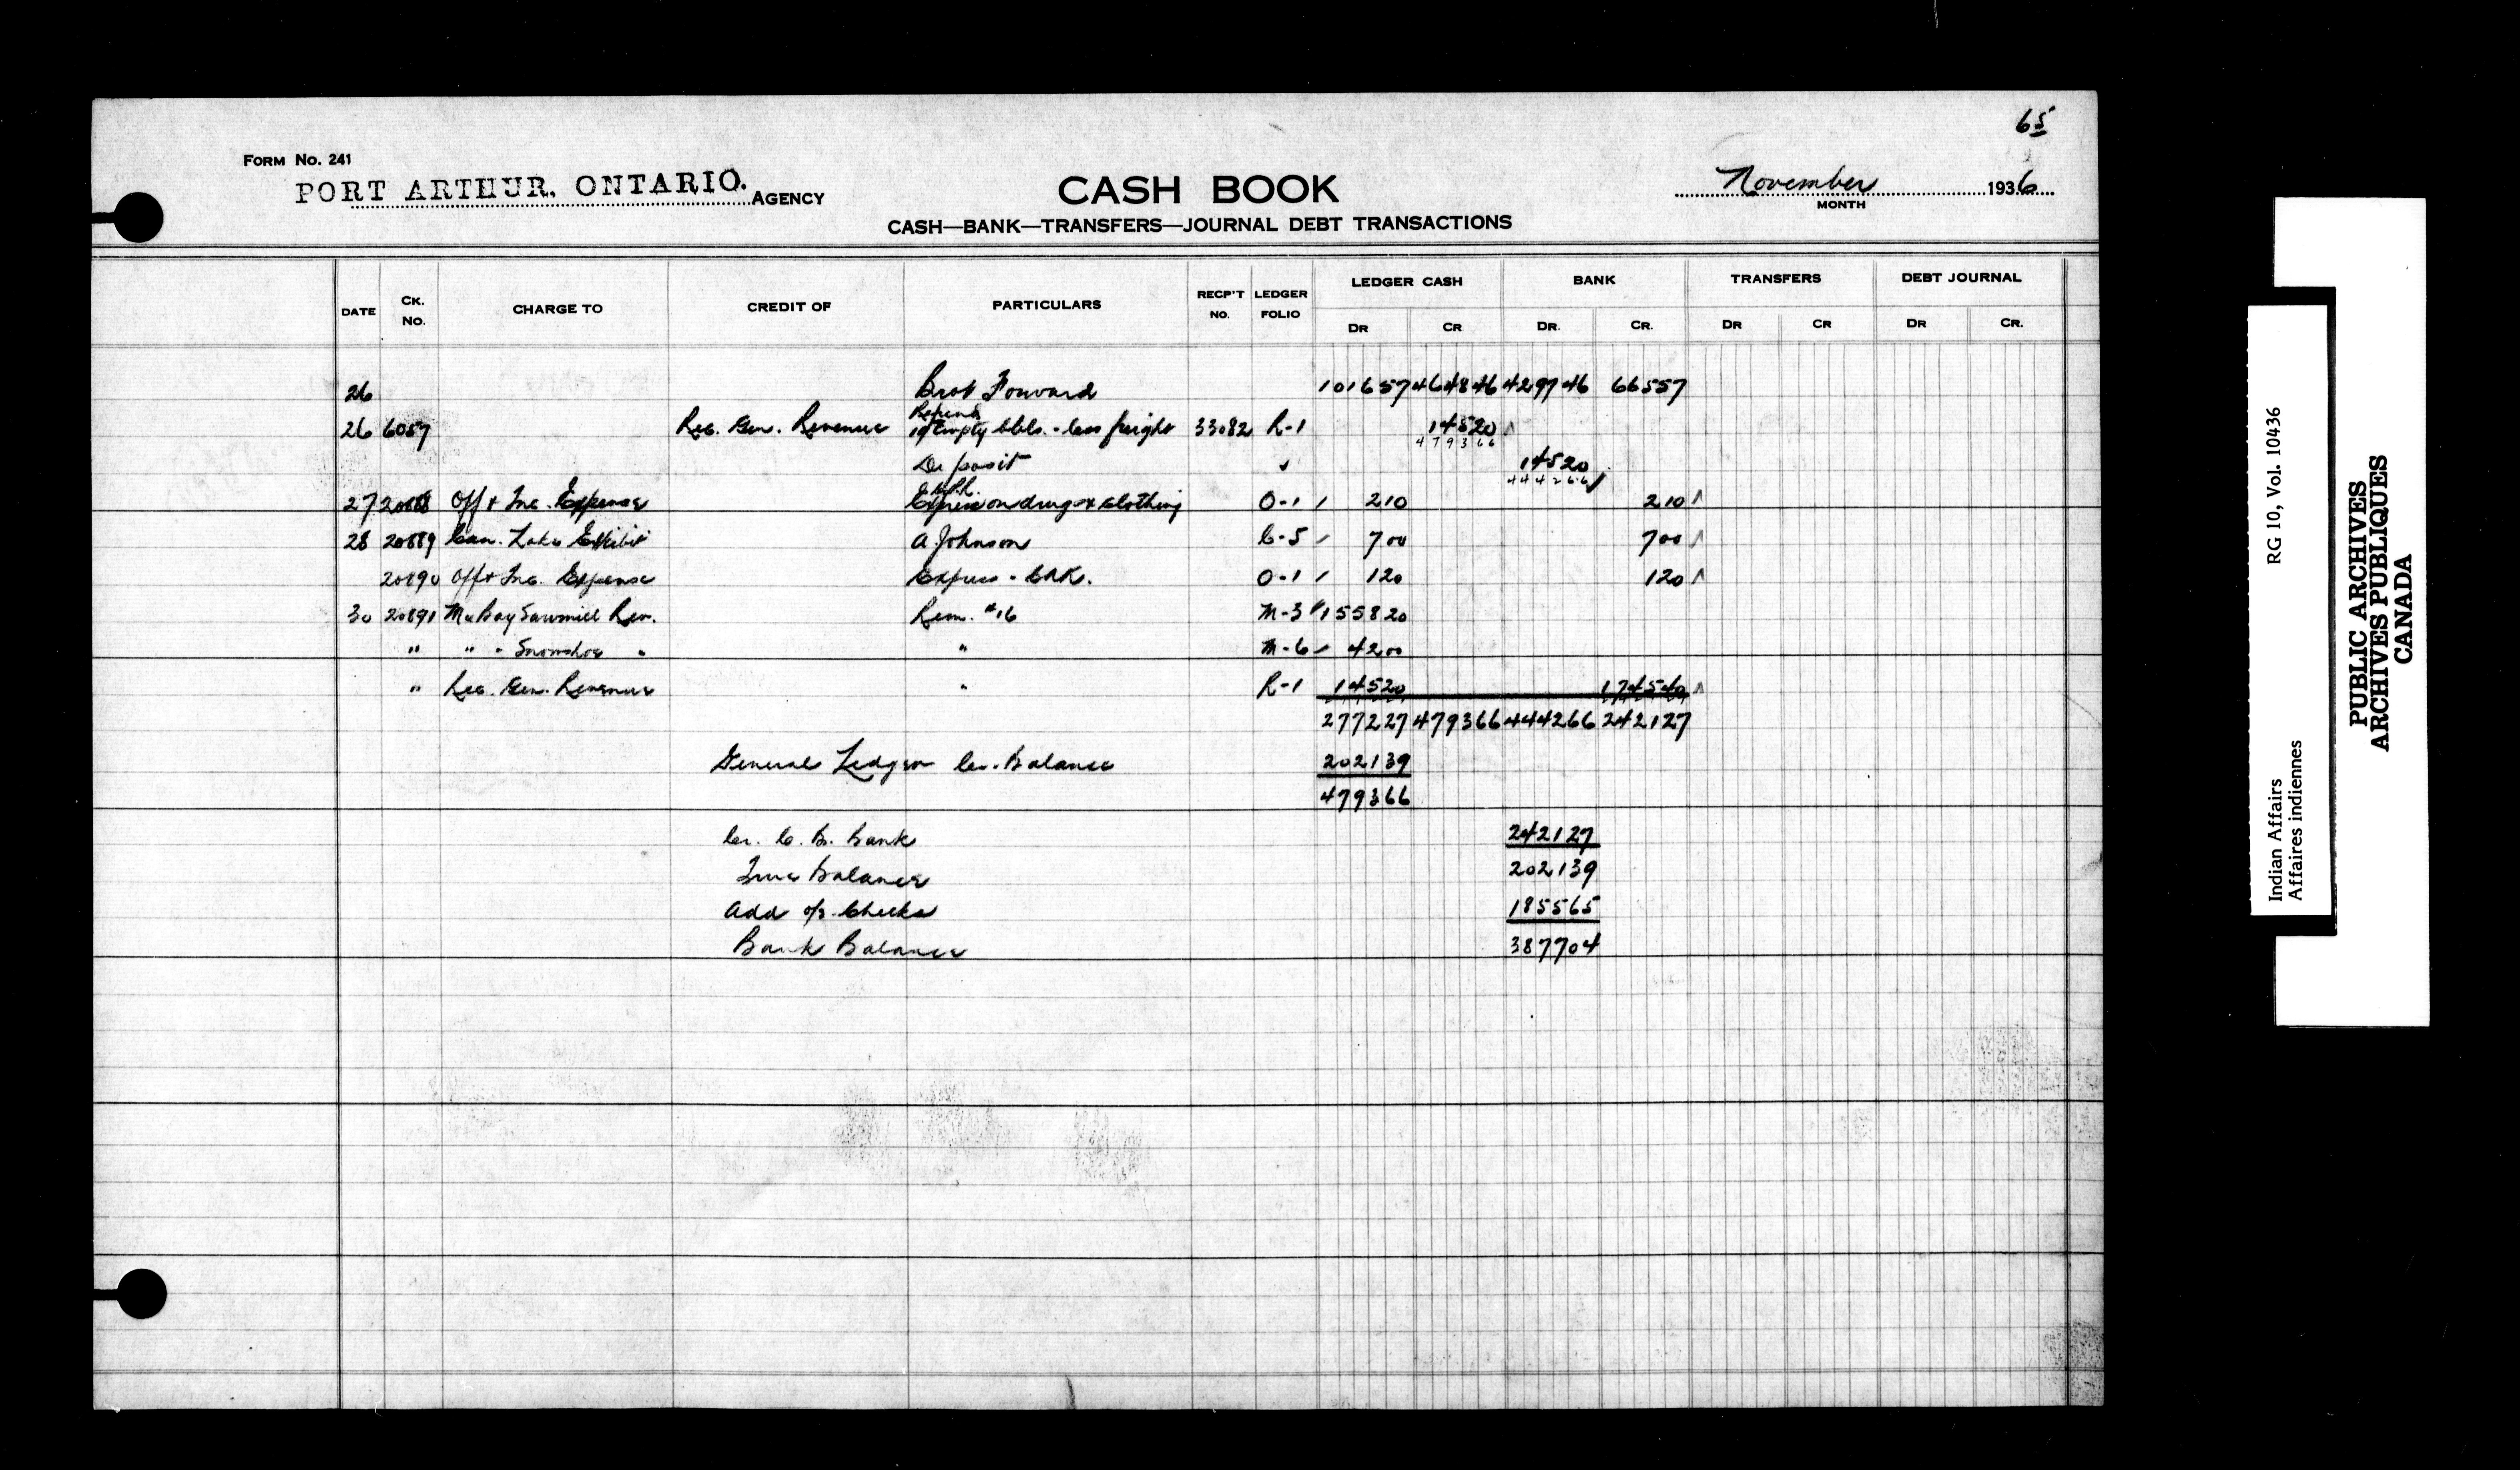 65
FORM NO. 241
PORT ARTHUR, ONTARIO. AGENCY
CASH BOOK
November 1936
MONTH
CASH—BANK—TRANSFERS—JOURNAL DEBT TRANSACTIONS
DATE CK. NO. CHARGE TO CREDIT OF PARTICULARS RECP'T NO. LEDGER FOLIO LEDGER CASH BANK TRANSFERS DEBT JOURNAL
DR CR DR. CR. DR CR DR CR.
26 Brot Forward 101657 464846 429746 66557
Refund
26 6057 Rec. Gen. Revenue Empty bbls. - less freight 33082 R-1 14520
479366
Deposit ✓ 14520
444266
27 20888 Off & Inc. Expense Express on drugs & clothing O-1 210 210
28 20889 Can. Lake Exhibit A. Johnson C-5 700 700
20890 Off & Inc. Expense Express - C.N.R. O-1 120 120
30 20891 McBay Sawmill Rev. Rem. #16 M-3 155820
" " " Snowshoe " " M-6 4200
" Rec. Gen. Revenue " R-1 14520 174540
277227 479366 444266 242127
General Ledger Cr. Balance 202139
479366
Cr. C. B. Bank 242127
True Balance 202139
Add o/s Checks 185565
Bank Balance 387704
Indian Affairs RG 10, Vol. 10436
Affaires indiennes
PUBLIC ARCHIVES
ARCHIVES PUBLIQUES
CANADA